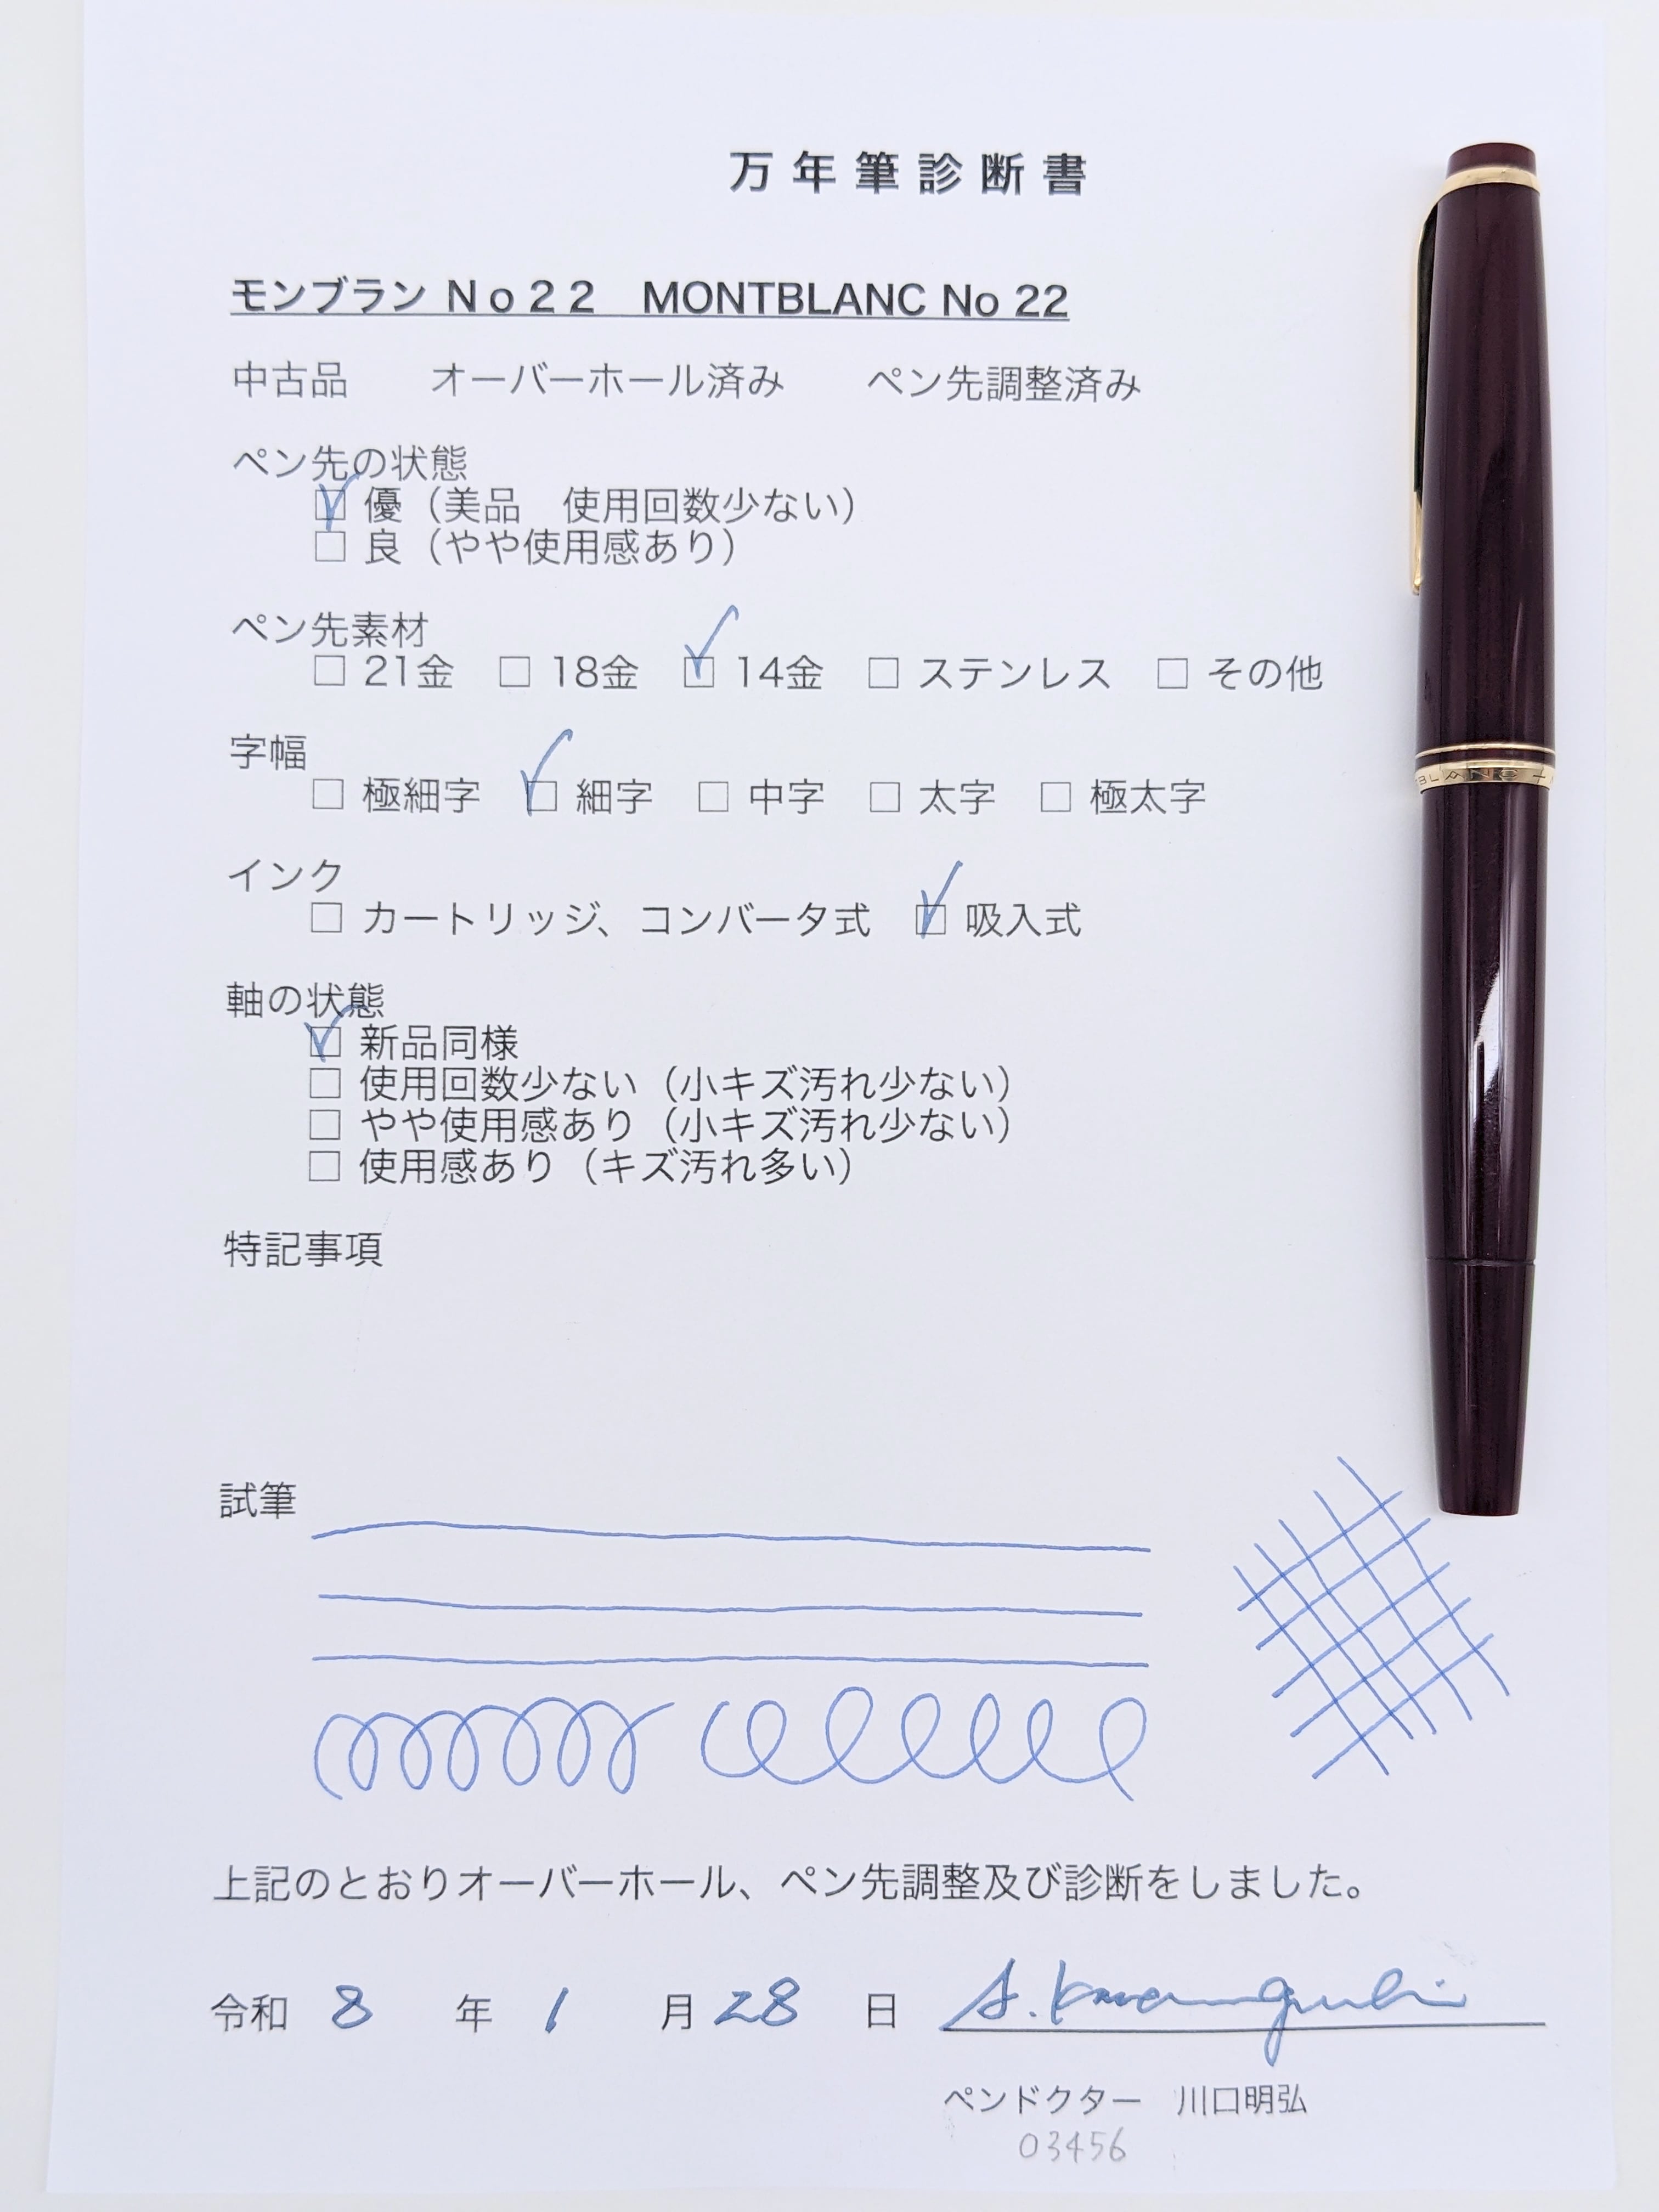 万年筆診断書
モンブラン Ｎｏ２２　MONTBLANC No 22
中古品　　オーバーホール済み　　ペン先調整済み
ペン先の状態
☑ 優（美品　使用回数少ない）
□ 良（やや使用感あり）
ペン先素材
□ 21金　□ 18金　☑ 14金　□ ステンレス　□ その他
字幅
□ 極細字　☑ 細字　□ 中字　□ 太字　□ 極太字
インク
□ カートリッジ、コンバータ式　☑ 吸入式
軸の状態
☑ 新品同様
□ 使用回数少ない（小キズ汚れ少ない）
□ やや使用感あり（小キズ汚れ少ない）
□ 使用感あり（キズ汚れ多い）
特記事項
試筆
上記のとおりオーバーホール、ペン先調整及び診断をしました。
令和 8 年 1 月 28 日 A. Kawaguchi
ペンドクター　川口明弘
03456
BLANC